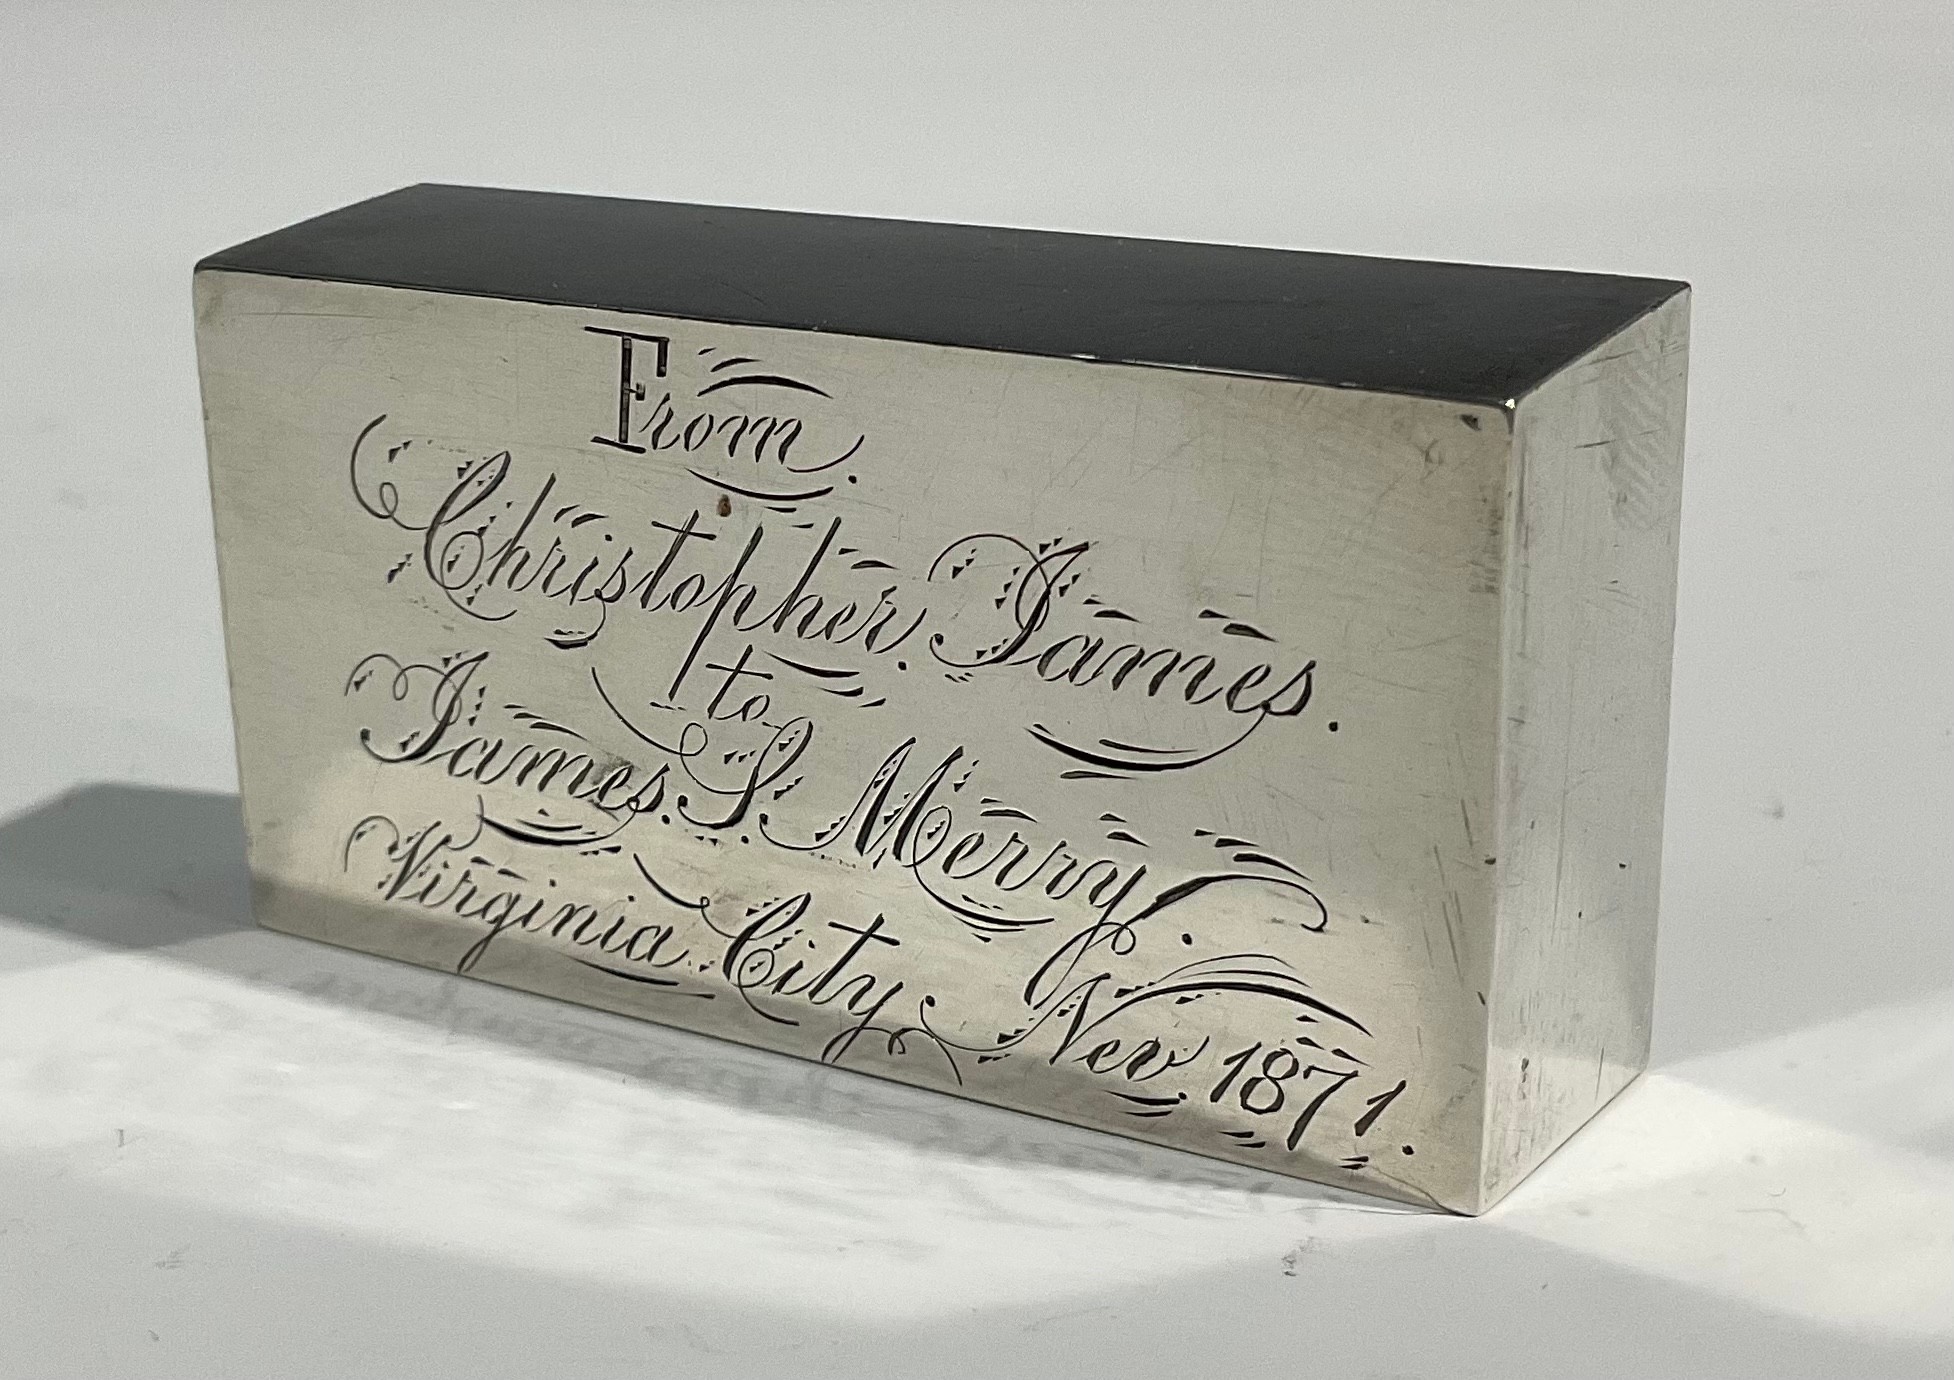 From.
Christopher. James.
to
James. S. Merry.
Virginia City, Nev. 1871.